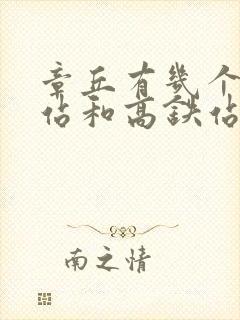 章丘有几个
站和高铁站
南之情